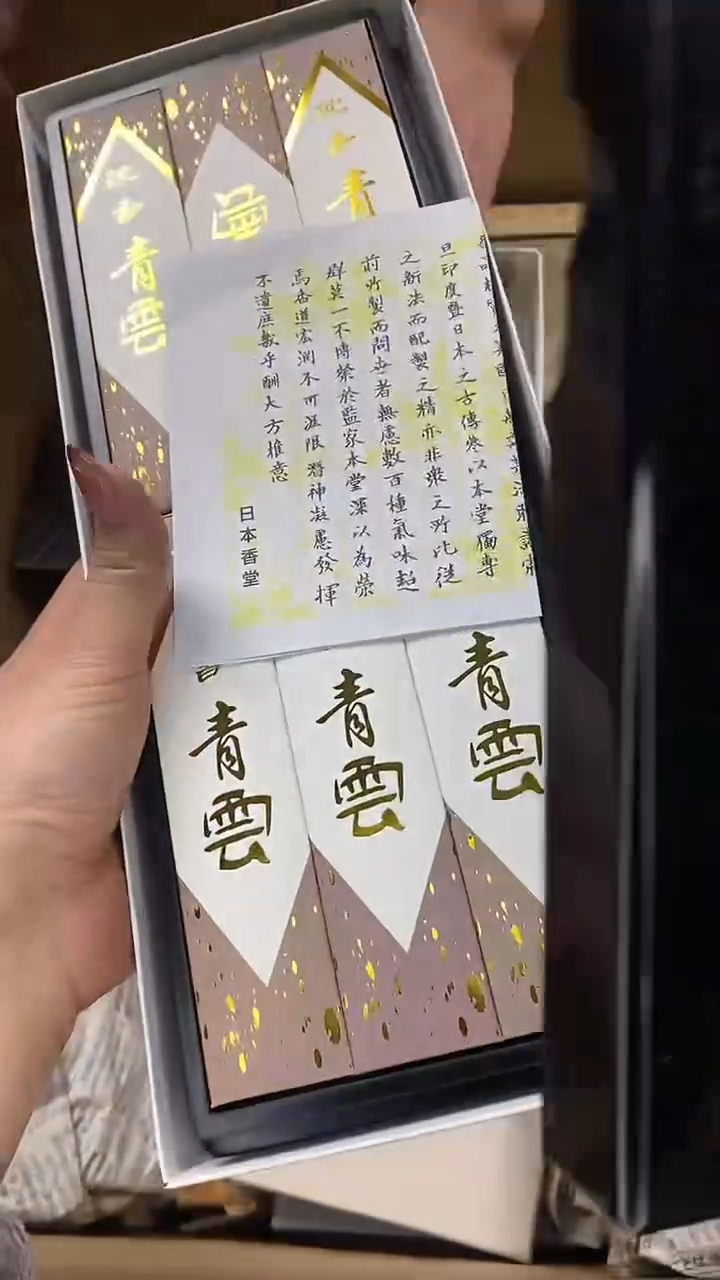 青雲
青
旦印度暨日本之古傳參以本堂獨專
之新法而配製之精亦非衆之所比從
前所製而問世者無慮數百種氣味超
群莫一不博榮於監家本堂深以為榮
馬香道宏淵不可涯限潛神凝慮發揮
不遺庶幾乎酬大方推意
日本香堂
青雲
青雲
青雲